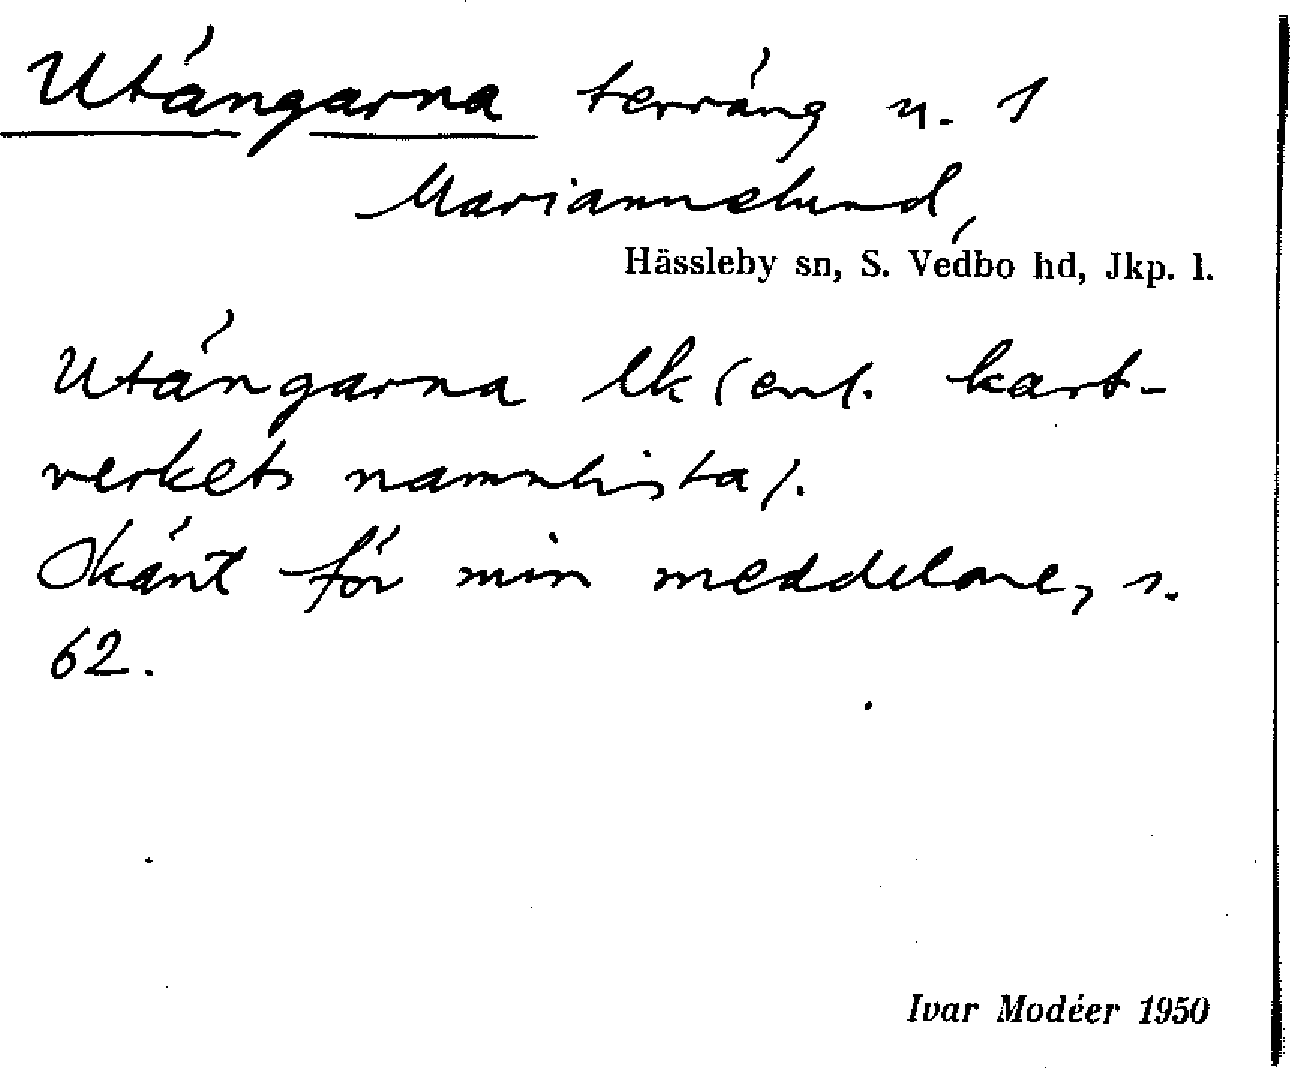 Utängarna terräng u. 1
Mariannelund,
Hässleby sn, S. Vedbo hd, Jkp. l.
Utängarna Ek (enl. kart-
verkets namnlista).
Okänt för min meddelare, s.
62.
Ivar Modéer 1950